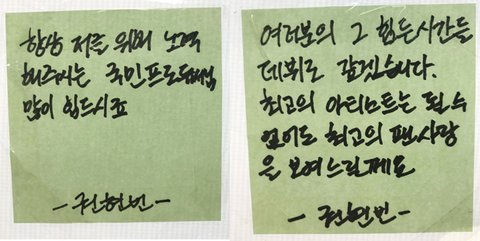 항상 저를 위해 노력
해주시는 국민프로듀서님
많이 힘드시죠
-권현빈-
여러분의 그 힘든시간들
데뷔로 갚겠습니다.
최고의 아티스트는 될 수
없어도 최고의 팬사랑
을 보여드릴께요
-권현빈-